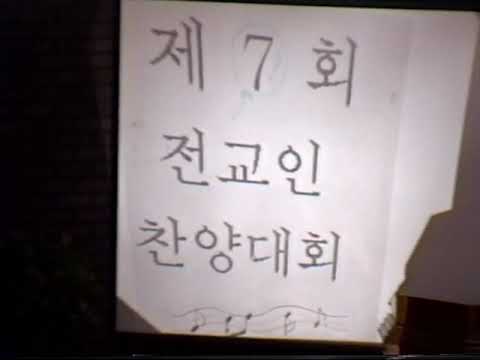 제 7 회
전교인
찬양대회